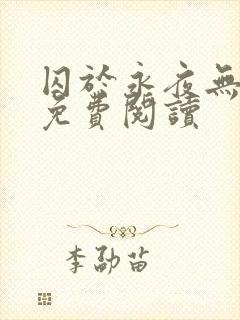 囚於永夜無
免費閱讀
李勐苗